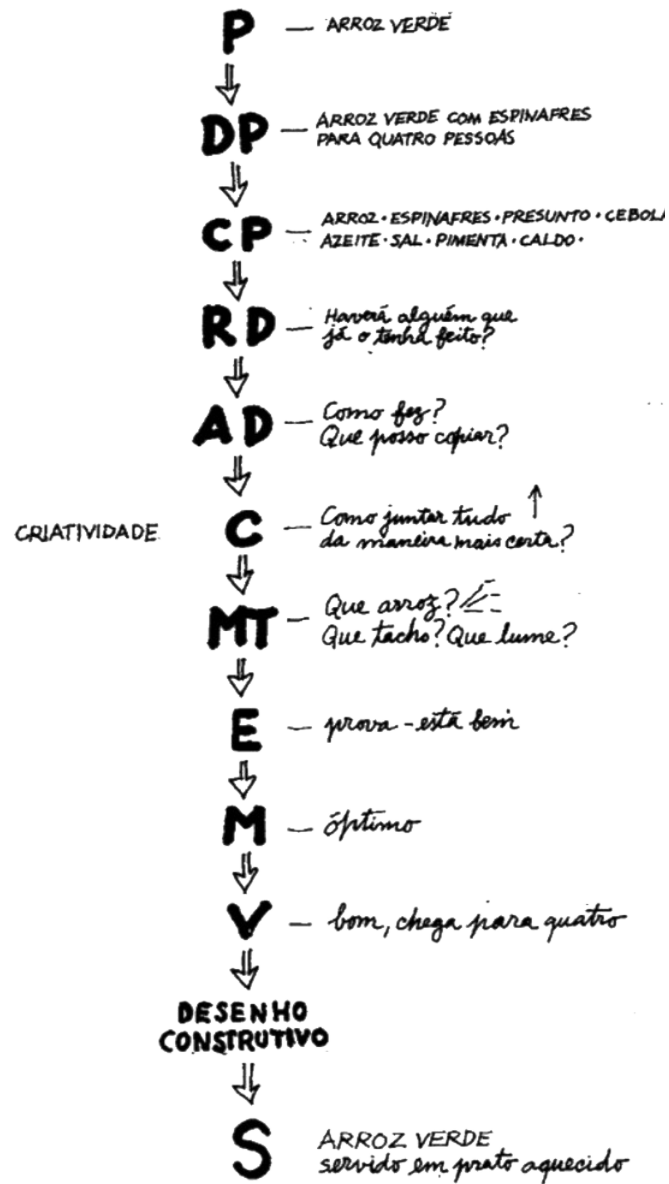 P — ARROZ VERDE
DP — ARROZ VERDE COM ESPINAFRES
PARA QUATRO PESSOAS
CP — ARROZ·ESPINAFRES·PRESUNTO·CEBOLA
AZEITE·SAL·PIMENTA·CALDO·
RD — Haverá alguém que
já o tenha feito?
AD — Como fez?
Que posso copiar?
CRIATIVIDADE C — Como juntar tudo
da maneira mais certa?
MT — Que arroz?
Que tacho? Que lume?
E — prova - está bem
M — óptimo
V — bom, chega para quatro
DESENHO
CONSTRUTIVO
S ARROZ VERDE
servido em prato aquecido